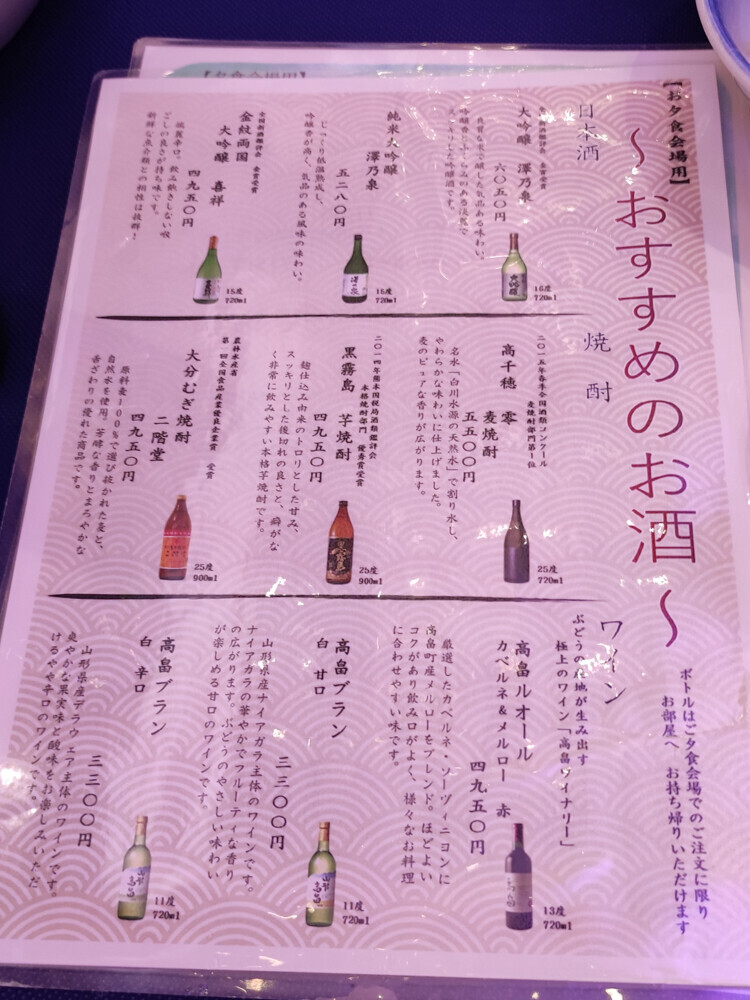 【お夕食会場用】
～おすすめのお酒～
ボトルはご夕食会場でのご注文に限り
お部屋へ お持ち帰りいただけます
日本酒
全国新酒鑑評会 金賞受賞
大吟醸 澤乃泉
六〇五〇円
良質な米で醸した気品ある味わい。
吟醸香とふくらみのある淡麗で
スッキリした吟醸酒です。
16度
720ml
純米大吟醸 澤乃泉
五二八〇円
じっくり低温熟成し、
吟醸香が高く、気品のある風味の味わい。
15度
720ml
全国新酒鑑評会 金賞受賞
金紋両国
大吟醸 喜祥
四九五〇円
端麗辛口。飲み飽きしない喉
ごしの良さが持ち味です。
新鮮な魚介類との相性は抜群！
15度
720ml
焼酎
二〇一五年春季全国酒類コンクール
麦焼酎部門第１位
高千穂 零
麦焼酎
五五〇〇円
名水「白川水源の天然水」で割り水し、
やわらかな味わいに仕上げました。
麦のピュアな香りが広がります。
25度
720ml
二〇一四年熊本国税局酒類鑑評会
本格焼酎部門 優秀賞受賞
黒霧島 芋焼酎
四九五〇円
麹仕込み由来のトロリとした甘み、
スッキリとした後切れの良さと、癖がな
く非常に飲みやすい本格芋焼酎です。
25度
900ml
農林水産省
第一回全国食品産業優良企業賞 受賞
大分むぎ焼酎
二階堂
四九五〇円
原料麦１００％で選び抜かれた麦と、
自然水を使用。芳醇な香りとまろやかな
舌ざわりの優れた商品です。
25度
900ml
ワイン
ぶどうの産地が生み出す
極上のワイン「高畠ワイナリー」
高畠ルオール
カベルネ＆メルロー 赤
四九五〇円
厳選したカベルネ・ソーヴィニヨンに
高畠町産メルローをブレンド。ほどよい
コクがあり飲み口がよく、様々なお料理
に合わせやすい味です。
13度
720ml
高畠ブラン
白 甘口
三三〇〇円
山形県産ナイアガラ主体のワインです。
ナイアガラの華やかでフルーティな香り
の広がります。ぶどうのやさしい味わい
が楽しめる甘口のワインです。
11度
720ml
高畠ブラン
白 辛口
三三〇〇円
山形県産デラウェア主体のワインです。
爽やかな果実味と酸味をお楽しみいただ
けるやや辛口のワインです。
11度
720ml
【夕食会場用】